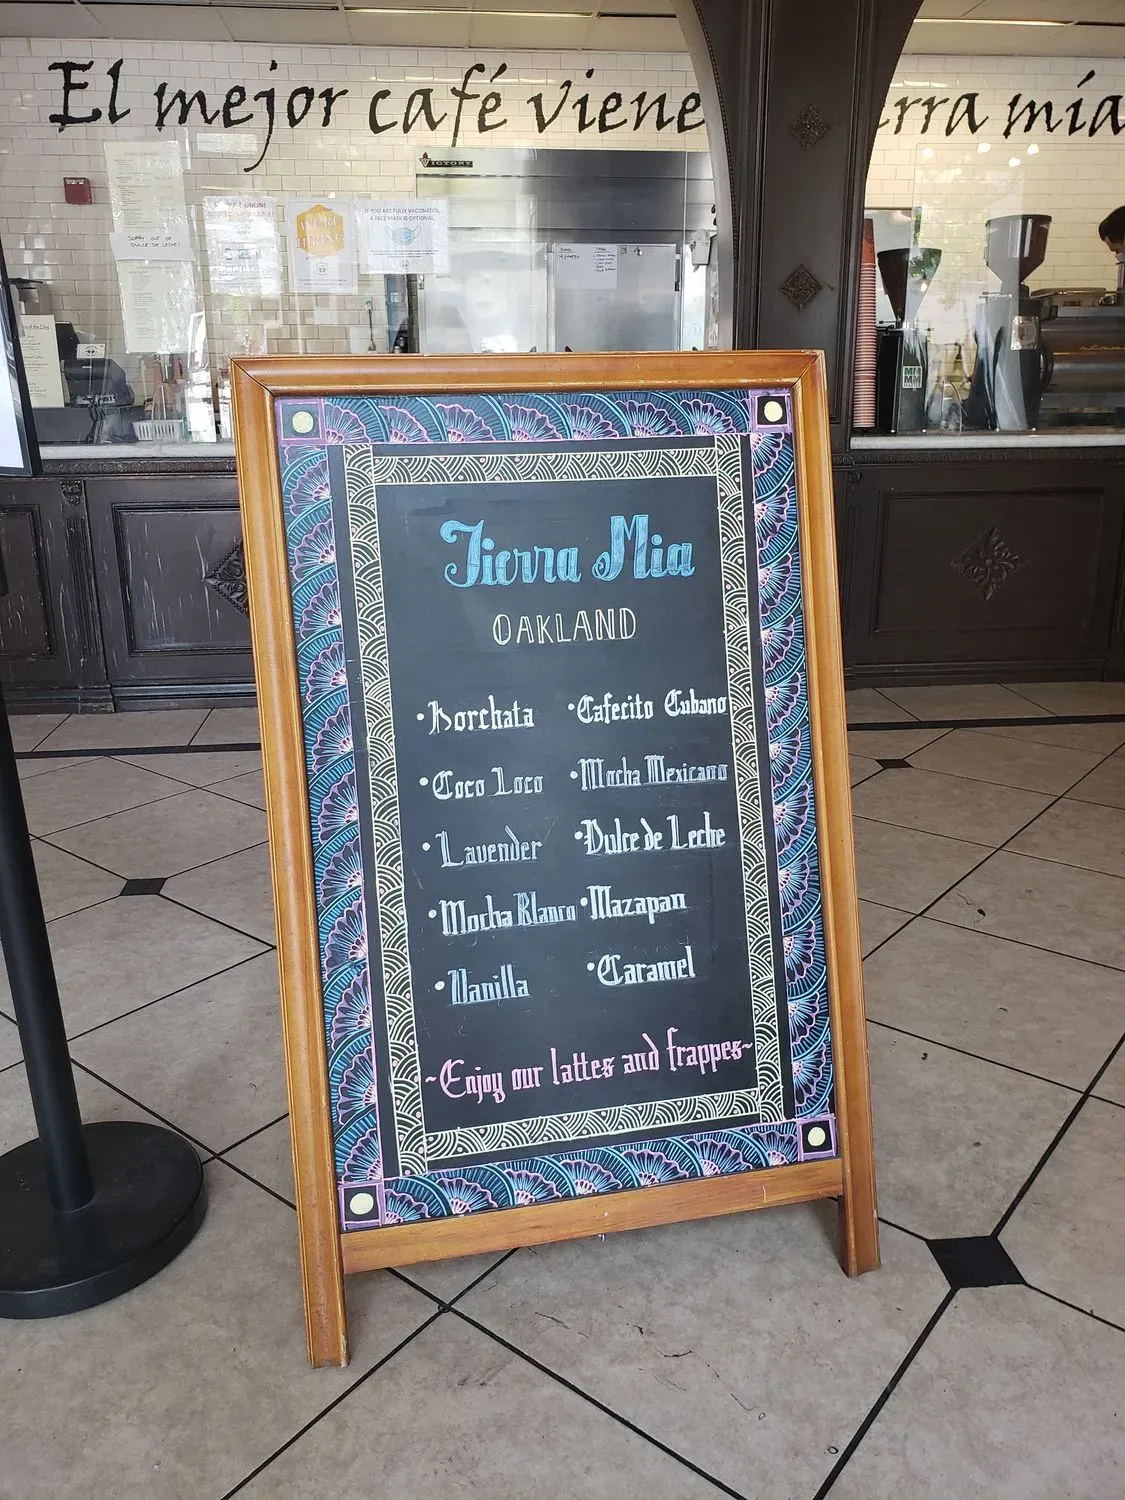 El mejor café viene
rra mía
VICTORY
SORRY OUT OF
DULCE DE LECHE
WE'RE
HIRING
IF YOU ARE FULLY VACCINATED,
A FACE MASK IS OPTIONAL
Tierra Mia
OAKLAND
•Horchata •Cafecito Cubano
•Coco Loco •Mocha Mexicano
•Lavender •Dulce de Leche
•Mocha Blanco •Mazapan
•Vanilla •Caramel
~Enjoy our lattes and frappes~